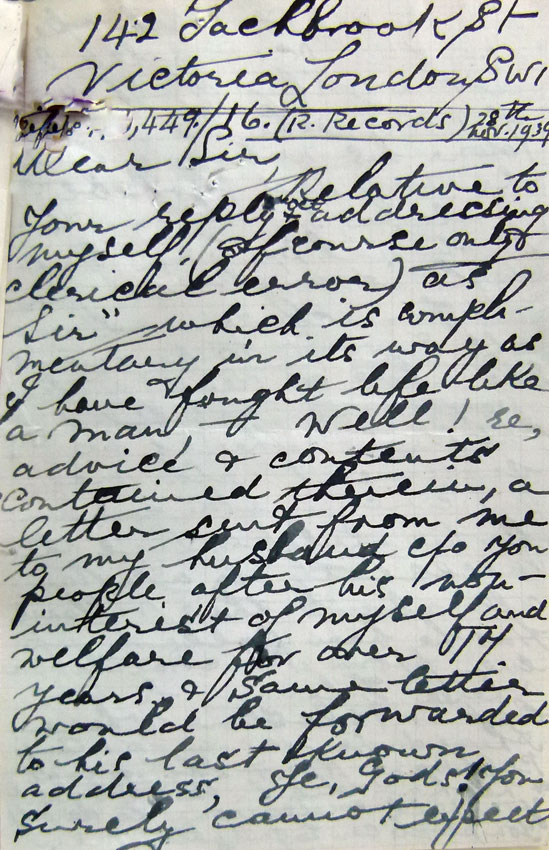 142 Tachbrook St
Victoria, London, SW1
,449./16. (R. Records) 28th Nov. 1939
Dear Sir,
Relative to
your reply addressing
myself, (of course only
clerical error) as
Sir" which is compli-
mentary in its way as
I have fought life like
a man, — Well! re,
advice & contents
contained therein, a
letter sent from me
to my husband c/o you
people after his non-
interest of myself and
welfare for over
years, & same letter
would be forwarded
to his last known
address, Ye, Gods! you
surely cannot expect